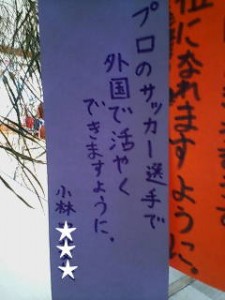 プロのサッカー選手で
外国で活やく
できますように.
小林
位になれますように.